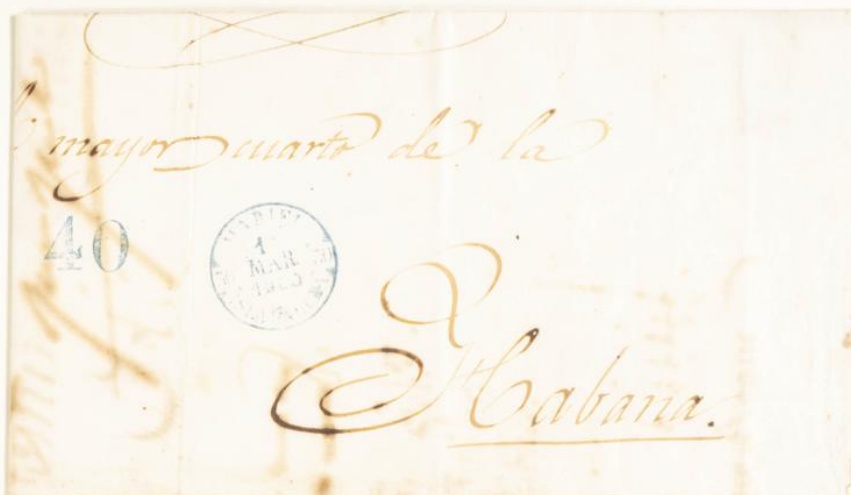 mayor cuarto de la
40
MARIEL
1
MAR
Habana.